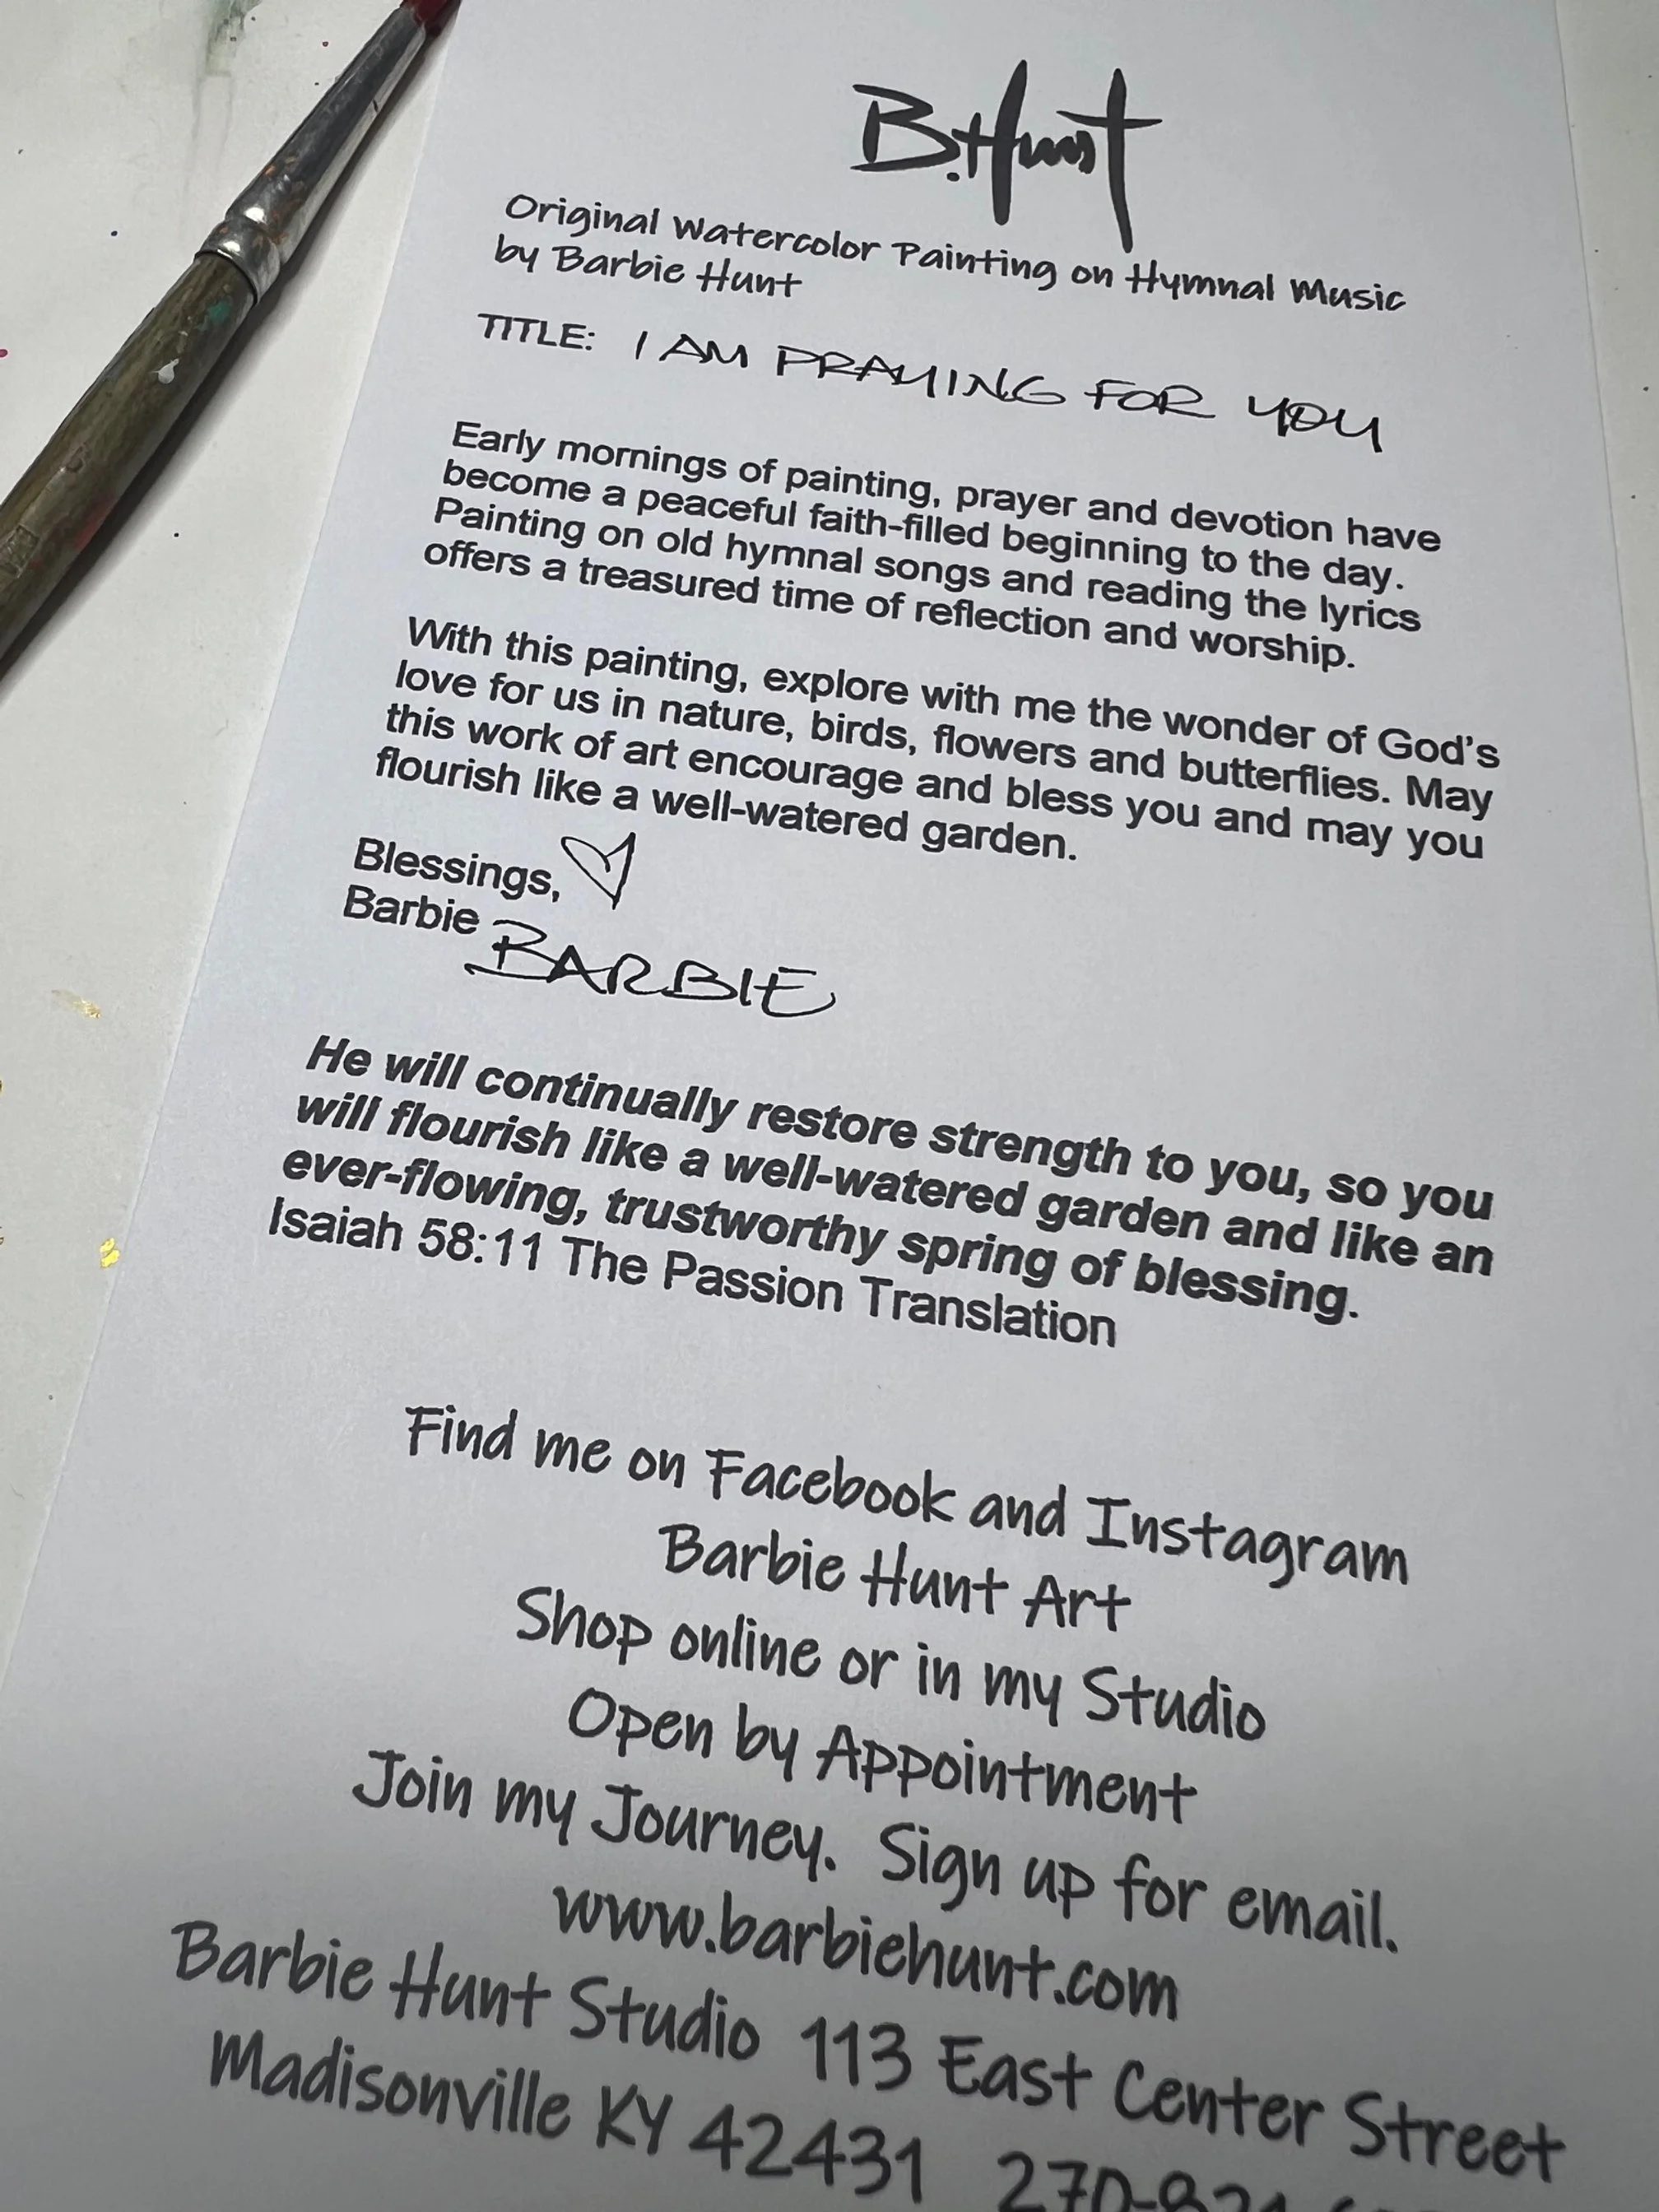 B.Hunt
Original Watercolor Painting on Hymnal Music
by Barbie Hunt
TITLE: I AM PRAYING FOR YOU
Early mornings of painting, prayer and devotion have
become a peaceful faith-filled beginning to the day.
Painting on old hymnal songs and reading the lyrics
offers a treasured time of reflection and worship.
With this painting, explore with me the wonder of God's
love for us in nature, birds, flowers and butterflies. May
this work of art encourage and bless you and may you
flourish like a well-watered garden.
Blessings,
Barbie BARBIE
He will continually restore strength to you, so you
will flourish like a well-watered garden and like an
ever-flowing, trustworthy spring of blessing.
Isaiah 58:11 The Passion Translation
Find me on Facebook and Instagram
Barbie Hunt Art
Shop online or in my Studio
Open by Appointment
Join my Journey. Sign up for email.
www.barbiehunt.com
Barbie Hunt Studio 113 East Center Street
Madisonville KY 42431